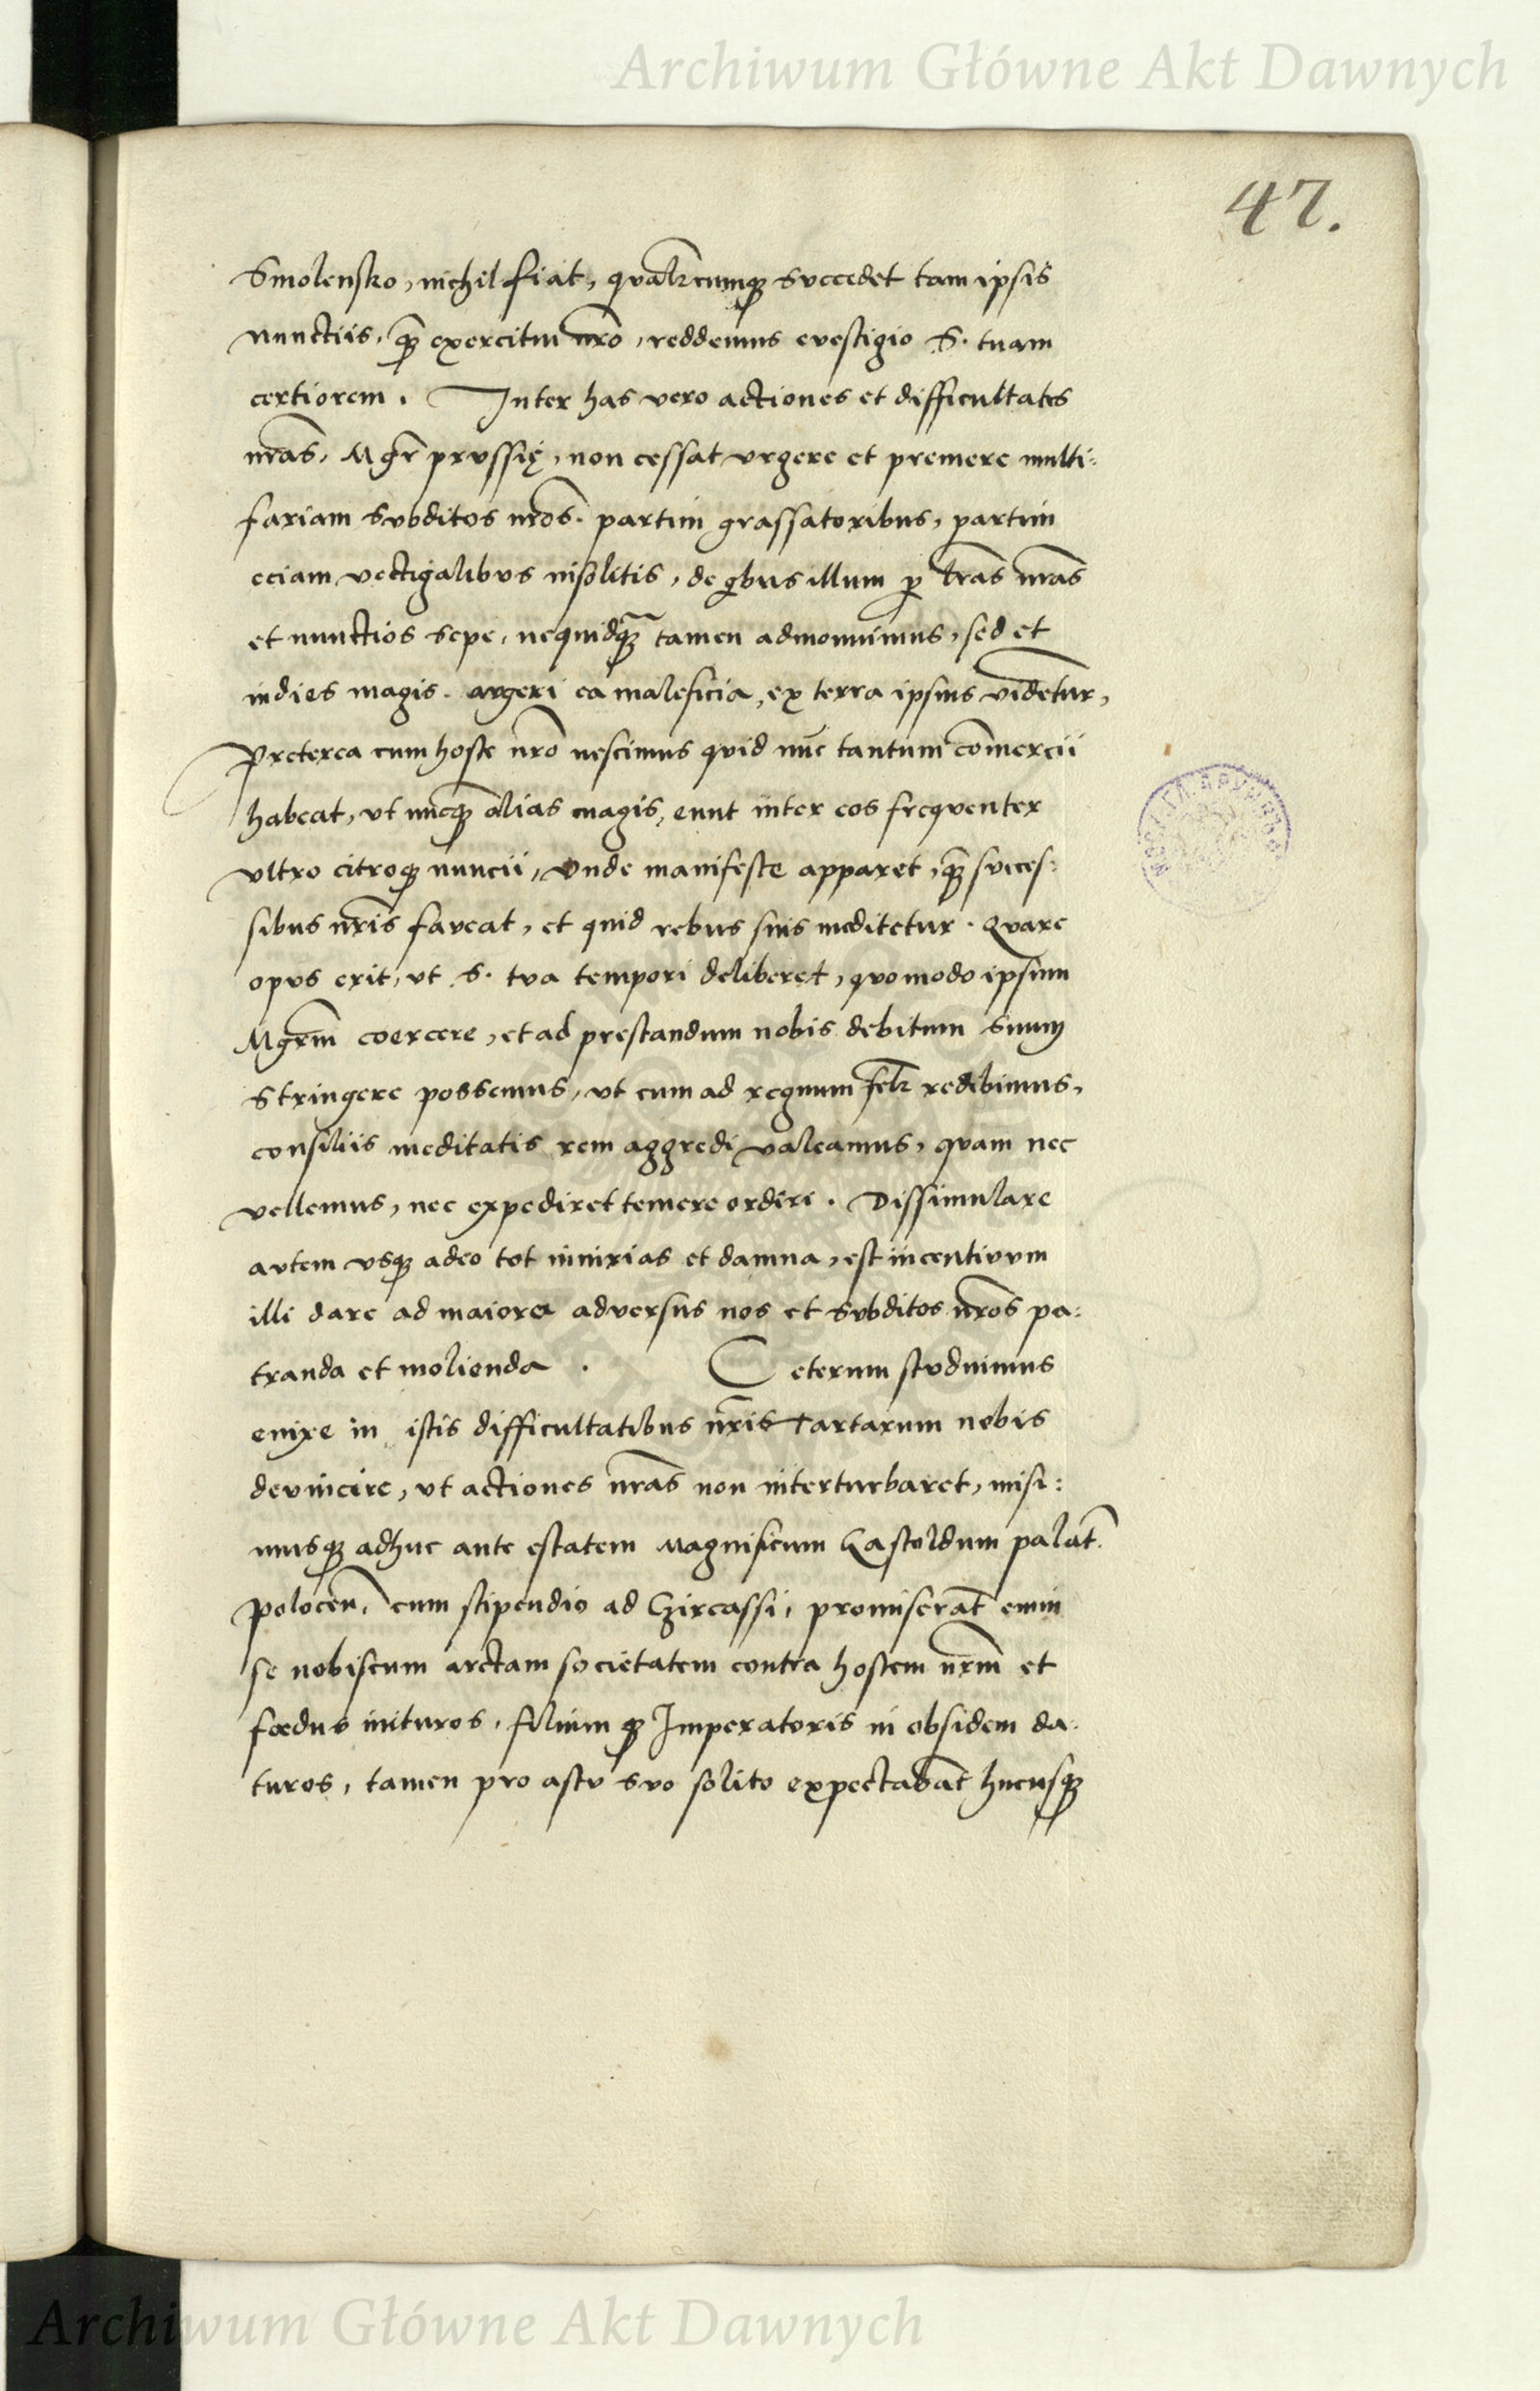 Archiwum Główne Akt Dawnych
47.
Smolensko, nichil fiat, qualr̃cumqꝫ succedet tam ipsis
nunctiis, qꝫ̃ exercitui nr̃o, reddemus evestigio S. tuam
certiorem. Inter has vero actiones et difficultates
nr̃as, Mgr̃ prussię, non cessat vrgere et premere multi:
fariam subditos nr̃os. partim grassatoribus, partim
eciam vectigalibus insolitis, de qͥbus illum ꝑ lr̃as nr̃as
et nunctios sepe, nequidqꝫ̃ tamen admonuimus, sed et
indies magis. augeri ea maleficia, ex terra ipsius videtur,
Preterea cum hoste nr̃o nescimus quid nũc tantum com̃ercii
habeat, vt nũcqꝫ alias magis, eunt inter eos frequenter
vltro citroqꝫ nuncii, vnde manifeste apparet, qꝫ̃ succes:
sibus nr̃is faveat, et quid rebus suis meditetur. Quare
opus erit, vt S. tua tempori deliberet, quomodo ipsum
Mgr̃m coercere, et ad prestandum nobis debitum suum
stringere possemus, vt cum ad regnum felr̃ redibimus,
consiliis meditatis rem aggredi valeamus, quam nec
vellemus, nec expediret temere ordiri. Dissimulare
autem vsqꝫ adeo tot iniurias et damna, est incentivum
illi dare ad maiora adversus nos et subditos nr̃os pa:
tranda et molienda. Ceterum studuimus
enixe in istis difficultatibus nr̃is tartarum nobis
devincire, vt actiones nr̃as non interturbaret, misi:
musqꝫ adhuc ante estatem Magnificum Gastoldum palat̃.
polocen̄. cum stipendio ad Czircassi, promiserãt enim
se nobiscum arctam societatem contra hostem nr̃m et
fœdus inituros, filium qꝫ Imperatoris in obsidem da:
turos, tamen pro astu suo solito expectabãt hucusqꝫ
Archiwum Główne Akt Dawnych